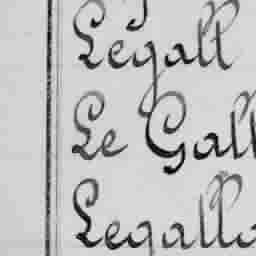 Legall
Le Gall
Legallo